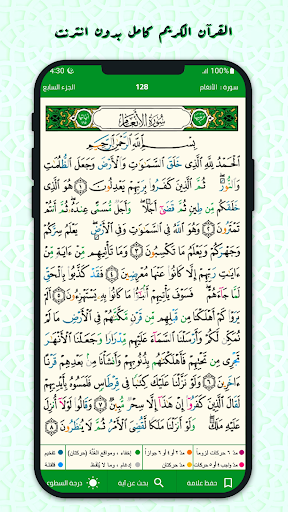 القرآن الكريم كامل بدون انترنت
4:30
سورة : الأنعام
128
الجزء السابع
سُورَةُ الأَنْعَامِ
بِسْمِ ٱللَّهِ ٱلرَّحْمَٰنِ ٱلرَّحِيمِ
ٱلْحَمْدُ لِلَّهِ ٱلَّذِى خَلَقَ ٱلسَّمَٰوَٰتِ وَٱلْأَرْضَ وَجَعَلَ ٱلظُّلُمَٰتِ
وَٱلنُّورَ ۖ ثُمَّ ٱلَّذِينَ كَفَرُوا۟ بِرَبِّهِمْ يَعْدِلُونَ ١ هُوَ ٱلَّذِى
خَلَقَكُم مِّن طِينٍ ثُمَّ قَضَىٰٓ أَجَلًا ۖ وَأَجَلٌ مُّسَمًّى عِندَهُۥ ۖ ثُمَّ أَنتُمْ
تَمْتَرُونَ ٢ وَهُوَ ٱللَّهُ فِى ٱلسَّمَٰوَٰتِ وَفِى ٱلْأَرْضِ ۖ يَعْلَمُ سِرَّكُمْ
وَجَهْرَكُمْ وَيَعْلَمُ مَا تَكْسِبُونَ ٣ وَمَا تَأْتِيهِم مِّنْ ءَايَةٍ مِّنْ
ءَايَٰتِ رَبِّهِمْ إِلَّا كَانُوا۟ عَنْهَا مُعْرِضِينَ ٤ فَقَدْ كَذَّبُوا۟ بِٱلْحَقِّ
لَمَّا جَآءَهُمْ ۖ فَسَوْفَ يَأْتِيهِمْ أَنۢبَٰٓؤُا۟ مَا كَانُوا۟ بِهِۦ يَسْتَهْزِءُونَ ٥
أَلَمْ يَرَوْا۟ كَمْ أَهْلَكْنَا مِن قَبْلِهِم مِّن قَرْنٍ مَّكَّنَّٰهُمْ فِى ٱلْأَرْضِ مَا لَمْ
نُمَكِّن لَّكُمْ وَأَرْسَلْنَا ٱلسَّمَآءَ عَلَيْهِم مِّدْرَارًا وَجَعَلْنَا ٱلْأَنْهَٰرَ
تَجْرِى مِن تَحْتِهِمْ فَأَهْلَكْنَٰهُم بِذُنُوبِهِمْ وَأَنشَأْنَا مِنۢ بَعْدِهِمْ قَرْنًا
ءَاخَرِينَ ٦ وَلَوْ نَزَّلْنَا عَلَيْكَ كِتَٰبًا فِى قِرْطَاسٍ فَلَمَسُوهُ بِأَيْدِيهِمْ
لَقَالَ ٱلَّذِينَ كَفَرُوٓا۟ إِنْ هَٰذَآ إِلَّا سِحْرٌ مُّبِينٌ ٧ وَقَالُوا۟ لَوْلَآ أُنزِلَ
عَلَيْهِ مَلَكٌ ۖ وَلَوْ أَنزَلْنَا مَلَكًا لَّقُضِىَ ٱلْأَمْرُ ثُمَّ لَا يُنظَرُونَ ٨
مد ٦ حركات لزوماً مد ٢ أو ٤ أو ٦ جوازاً إخفاء ، ومواقع الغُنَّة (حركتان) تفخيم
مد واجب ٤ أو ٥ حركات مد حركتان إدغام ، وما لا يُلفَظ قلقلة
حفظ علامة
بحث عن آية
درجة السطوع